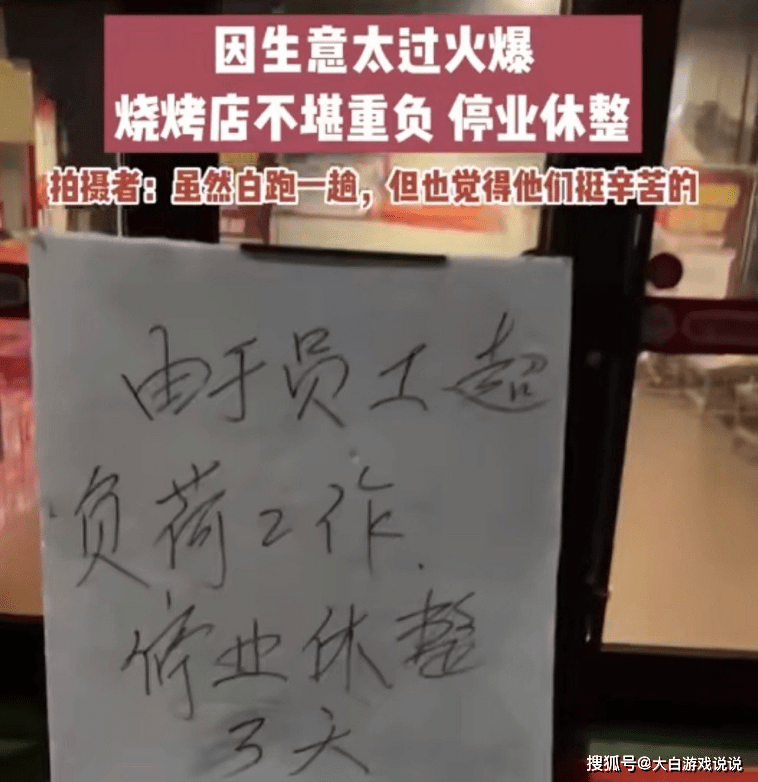 因生意太过火爆
烧烤店不堪重负 停业休整
拍摄者：虽然白跑一趟，但也觉得他们挺辛苦的
由于员工超
负荷工作.
停业休整
3天
搜狐号@大白游戏说说